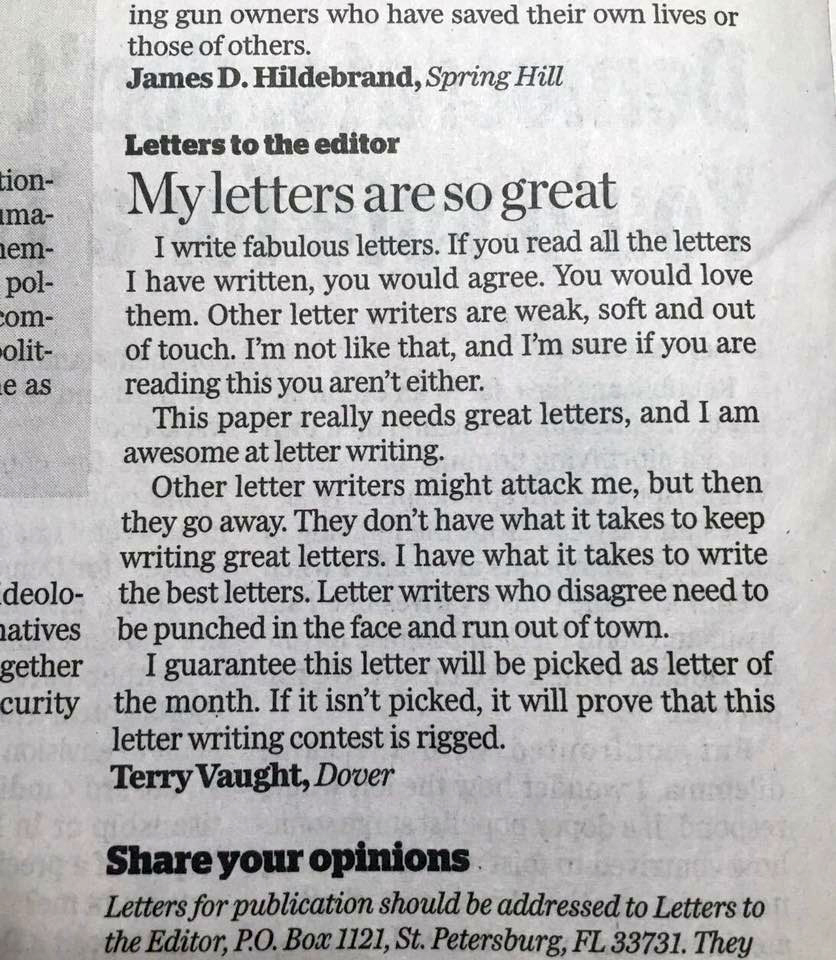 ing gun owners who have saved their own lives or
those of others.
James D. Hildebrand, Spring Hill
Letters to the editor
My letters are so great
I write fabulous letters. If you read all the letters
I have written, you would agree. You would love
them. Other letter writers are weak, soft and out
of touch. I'm not like that, and I'm sure if you are
reading this you aren't either.
This paper really needs great letters, and I am
awesome at letter writing.
Other letter writers might attack me, but then
they go away. They don't have what it takes to keep
writing great letters. I have what it takes to write
the best letters. Letter writers who disagree need to
be punched in the face and run out of town.
I guarantee this letter will be picked as letter of
the month. If it isn't picked, it will prove that this
letter writing contest is rigged.
Terry Vaught, Dover
Share your opinions
Letters for publication should be addressed to Letters to
the Editor, P.O. Box 1121, St. Petersburg, FL 33731. They
tion-
pol-
com-
polit-
as
deolo-
natives
gether
curity